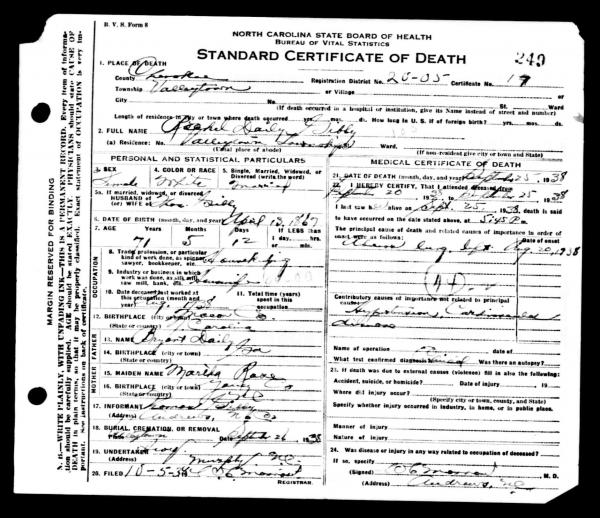 B. V. S. Form 8
NORTH CAROLINA STATE BOARD OF HEALTH
BUREAU OF VITAL STATISTICS
STANDARD CERTIFICATE OF DEATH
249
1. PLACE OF DEATH
County Cherokee Registration District No. 20-05 Certificate No. 19
Township Valleytown or Village
City No. St. Ward
(If death occurred in a hospital or institution, give its Name instead of street and number)
Length of residence in city or town where death occurred yrs. mos. ds. How long in U. S. if of foreign birth? yrs. mos. ds.
2. FULL NAME Rachel Daily
(a) Residence: No. Valleytown Township St. Ward
(Usual place of abode) (If non-resident give city or town and State)
PERSONAL AND STATISTICAL PARTICULARS
3. SEX 4. COLOR OR RACE 5. Single, Married, Widowed, or Divorced (write the word)
Female White Married
5a. If married, widowed, or divorced
HUSBAND of
(or) WIFE of
6. DATE OF BIRTH (month, day, and year) April 13, 1867
7. AGE If LESS than 1 day, hrs. or min.
71 5 12
OCCUPATION
8. Trade, profession, or particular kind of work done, as spinner, sawyer, bookkeeper, etc.
9. Industry or business in which work was done, as silk mill, saw mill, bank, etc.
10. Date deceased last worked at this occupation (month and year)
11. Total time (years) spent in this occupation
12. BIRTHPLACE (city or town)
(State or country) N. Carolina
FATHER
13. NAME Bryant Daily
14. BIRTHPLACE (city or town)
(State or country)
MOTHER
15. MAIDEN NAME Martha
16. BIRTHPLACE (city or town)
(State or country)
17. INFORMANT
(Address) Andrews, N. C.
18. BURIAL, CREMATION, OR REMOVAL
Place Valleytown Date Sept 26 1938
19. UNDERTAKER
(Address) Murphy, N.C.
20. FILED 10-5-38
REGISTRAR.
MEDICAL CERTIFICATE OF DEATH
21. DATE OF DEATH (month, day, and year) Sept 25 1938
22. I HEREBY CERTIFY, That I attended deceased from
20 1938 to Sept 25 1938
I last saw her alive on Sept. 25 1938 death is said
to have occurred on the date stated above, at 5:45 P. m.
The principal cause of death and related causes of importance in order of onset were as follows:
Date of onset
Aug 20, 1938
Contributory causes of importance not related to principal cause:
Hypertension, Cardiovascular
disease
Name of operation Date of
What test confirmed diagnosis? Clinical Was there an autopsy?
23. If death was due to external causes (violence) fill in also the following:
Accident, suicide, or homicide? Date of injury 19
Where did injury occur?
(Specify city or town, county, and State)
Specify whether injury occurred in industry, in home, or in public place.
Manner of injury
Nature of injury
24. Was disease or injury in any way related to occupation of deceased?
If so, specify
(Signed) M. D.
(Address) Andrews, N.C.
MARGIN RESERVED FOR BINDING
N. B.—WRITE PLAINLY, WITH UNFADING INK—THIS IS A PERMANENT RECORD. Every item of information should be carefully supplied. AGE should be stated EXACTLY. PHYSICIANS should state CAUSE OF DEATH in plain terms, so that it may be properly classified. Exact statement of OCCUPATION is very important. See instructions on back of certificate.